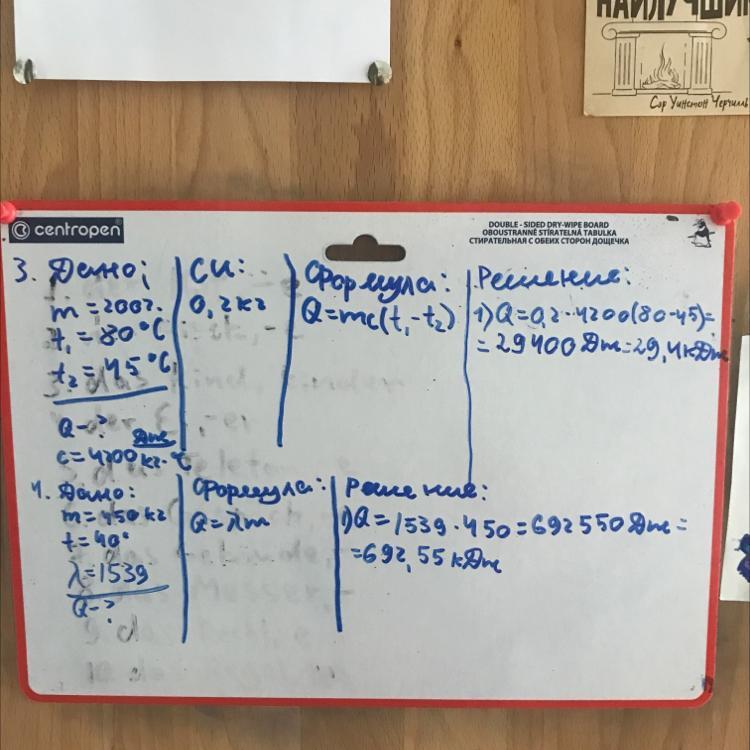 НАИЛУЧШИ
Сэр Уинстон Черчилль
centropen
DOUBLE - SIDED DRY-WIPE BOARD
OBOUSTRANNĚ STÍRATELNÁ TABULKA
СТИРАТЕЛЬНАЯ С ОБЕИХ СТОРОН ДОЩЕЧКА
3. Дано:
m = 200г.
t₁ = 80°C
t₂ = 45°C
Q-?
c = 4200 Дж/кг·°C
СИ:
0,2кг
Формула:
Q=mc(t₁-t₂)
Решение:
1) Q=0,2·4200(80-45)=
=29400Дж=29,4кДж
4. Дано:
m=450кг
t=40°
λ=1539
Q-?
Формула:
Q=λm
Решение:
1) Q=1539·450=692550Дж=
=692,55кДж